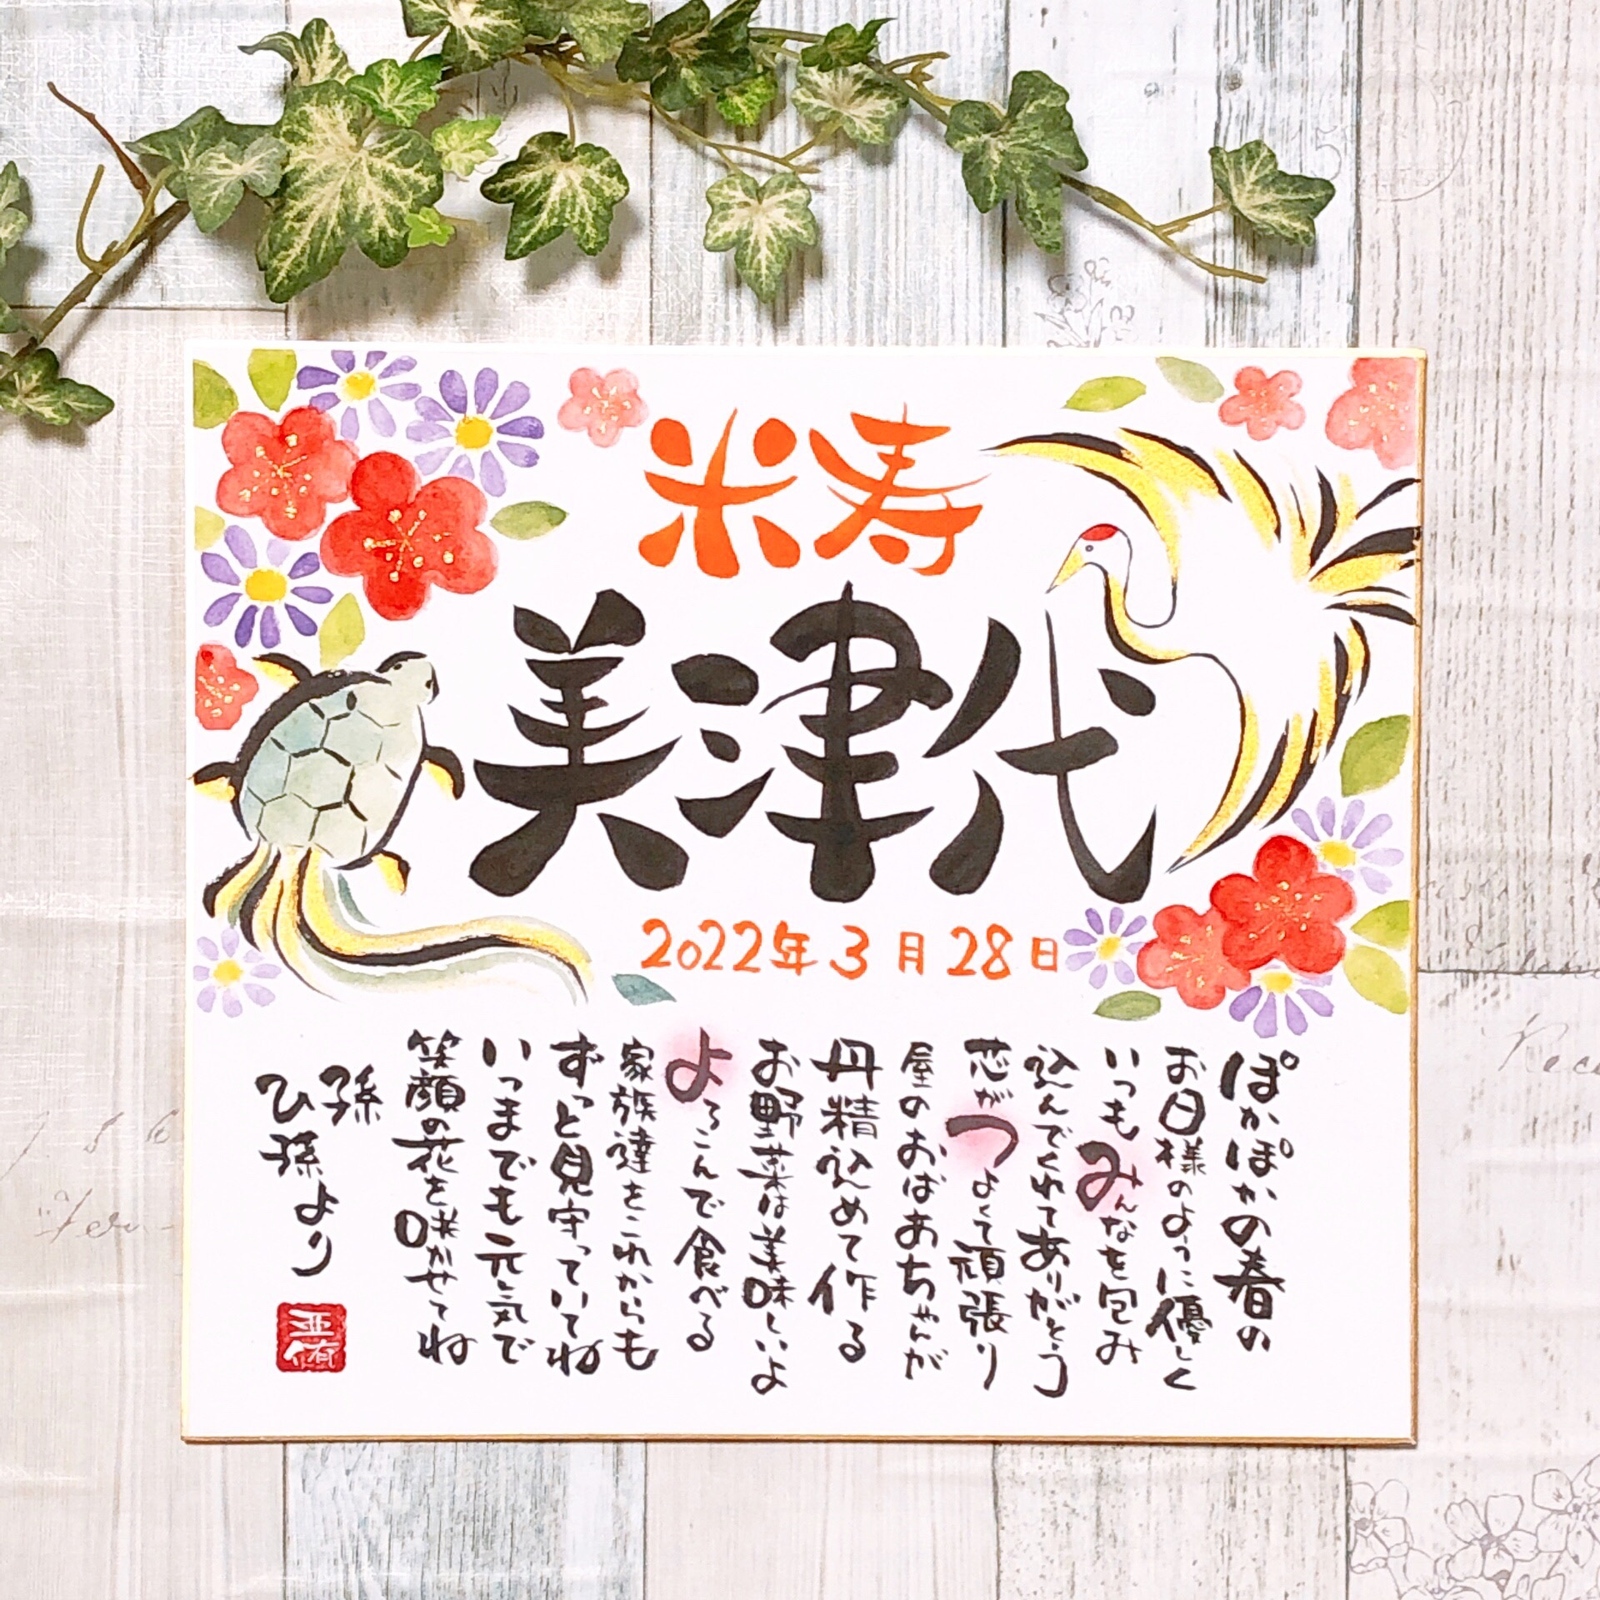 米寿
美津代
2022年3月28日
ぽかぽかの春の
お日様のように優しく
いつもみんなを包み
込んでくれてありがとう
芯がつよくて頑張り
屋のおばあちゃんが
丹精込めて作る
お野菜は美味しいよ
よろこんで食べる
家族達をこれからも
ずっと見守っていてね
いつまでも元気で
笑顔の花を咲かせてね
孫
ひ孫より
亜侑